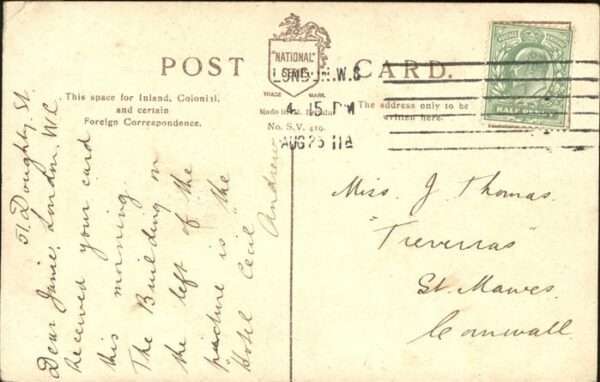 POST CARD.
"NATIONAL"
SERIES
TRADE MARK.
This space for Inland, Colonial,
and certain
Foreign Correspondence.
No. S.V. 419.
The address only to be
written here.
W.C
4. 15 PM
AUG 25 11
HALF PENNY
51. Doughty St.
London. W.C.
Dear Janie,
Received your card
this morning
The Building on
the left of the
picture is "the
Hotel Cecil"
Andrew
Miss. J. Thomas.
"Treverras"
St. Mawes,
Cornwall.